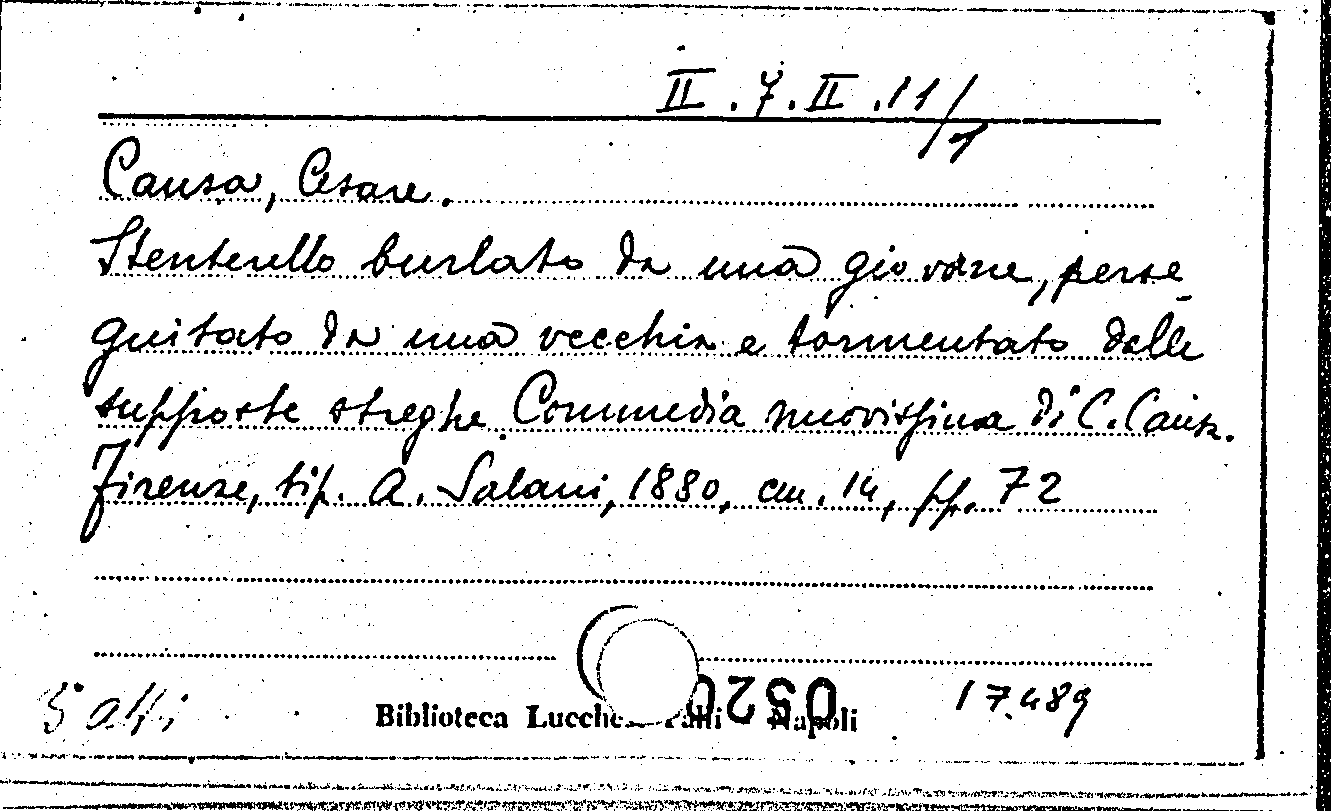 II.7.II.11/1
Causa, Cesare.
Stenterello burlato da una giovane, perse_
guitato da una vecchia e tormentato dalle
supposte streghe. Commedia nuovissima di C. Causa.
Firenze, tip. A. Salani, 1880, cm. 14, pp. 72
5 atti
Biblioteca Lucchesi Palli Napoli
17.489